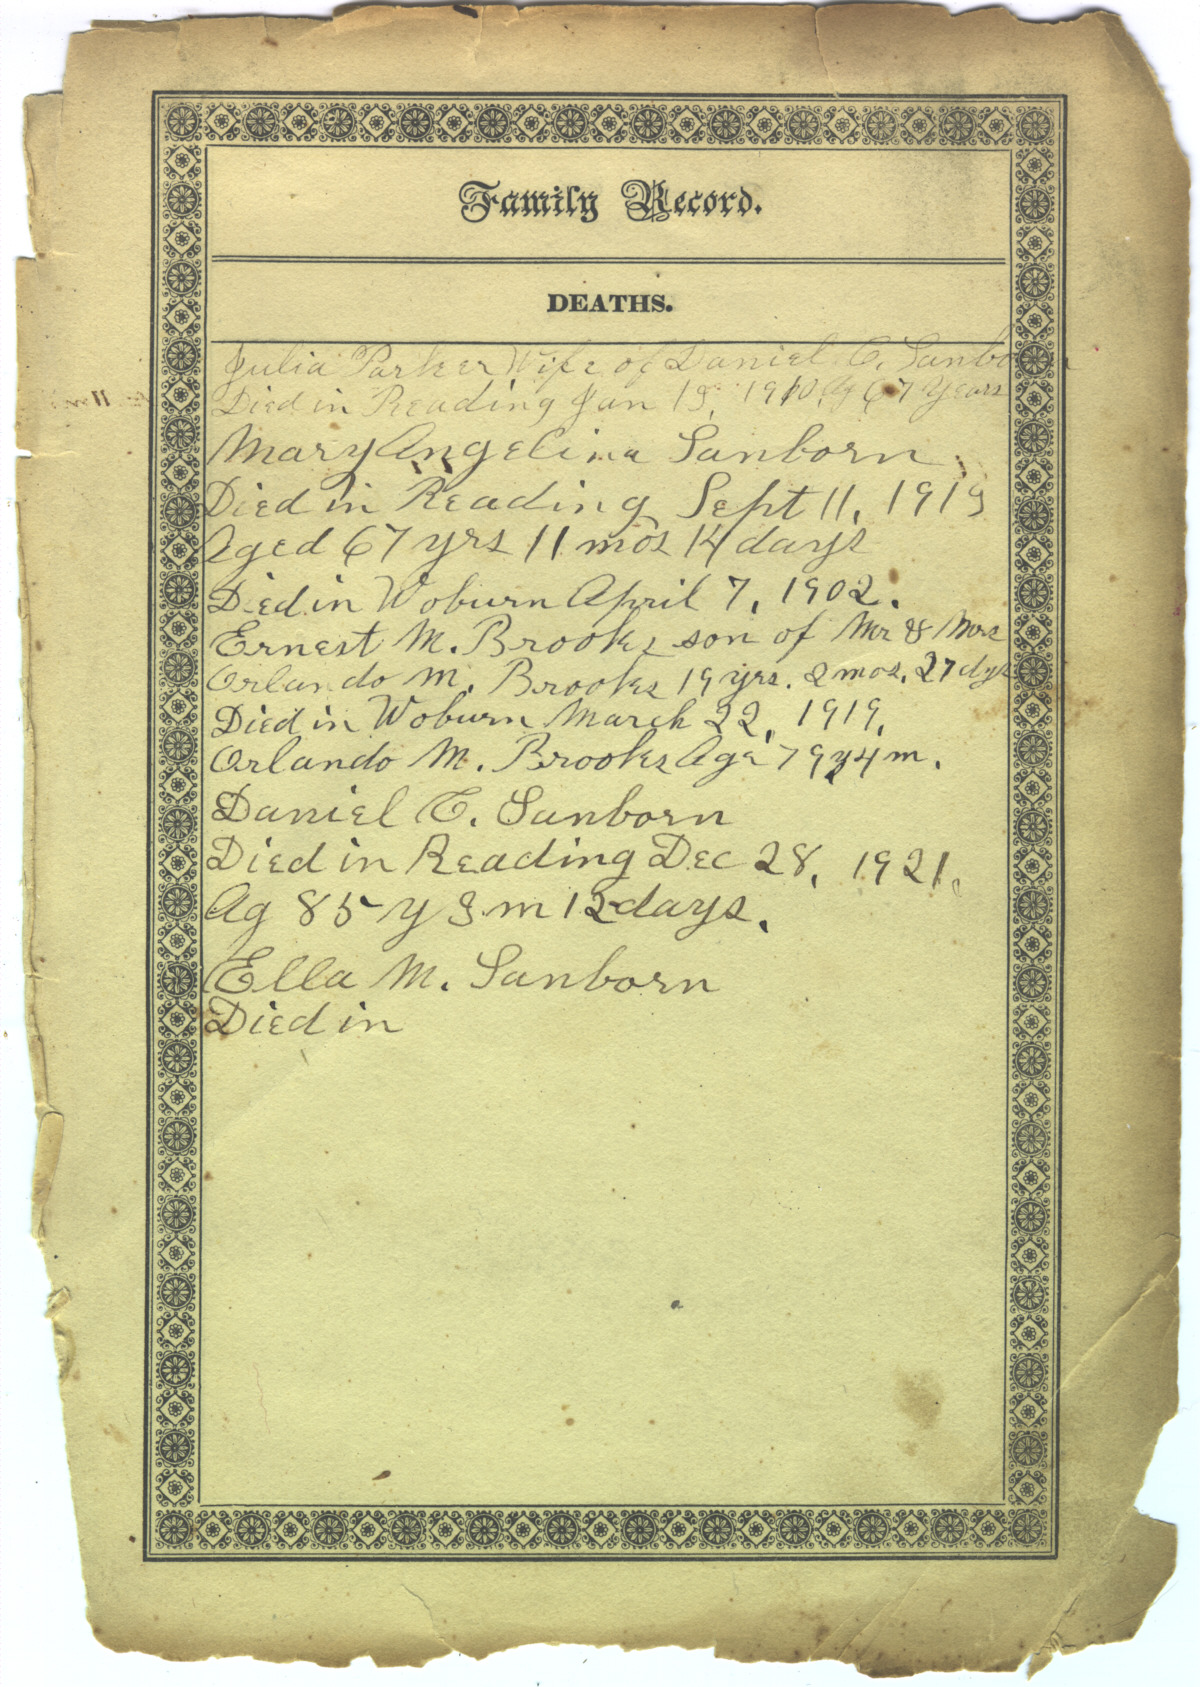 Family Record.
DEATHS.
Julia Parker Wife of Daniel C. Sanborn
Died in Reading Jan 19, 1910, Ag 67 Years
Mary Angelina Sanborn,
Died in Reading Sept 11, 1919
Aged 67 yrs 11 mos 14 days
Died in Woburn April 7, 1902.
Ernest M. Brooks son of Mr & Mrs
Orlando M. Brooks 19 yrs. 2 mos. 27 dys
Died in Woburn March 22, 1919,
Orlando M. Brooks Age 79 y 4 m.
Daniel C. Sanborn
Died in Reading Dec 28, 1921.
Ag 85 y 3 m 12 days.
Ella M. Sanborn
Died in